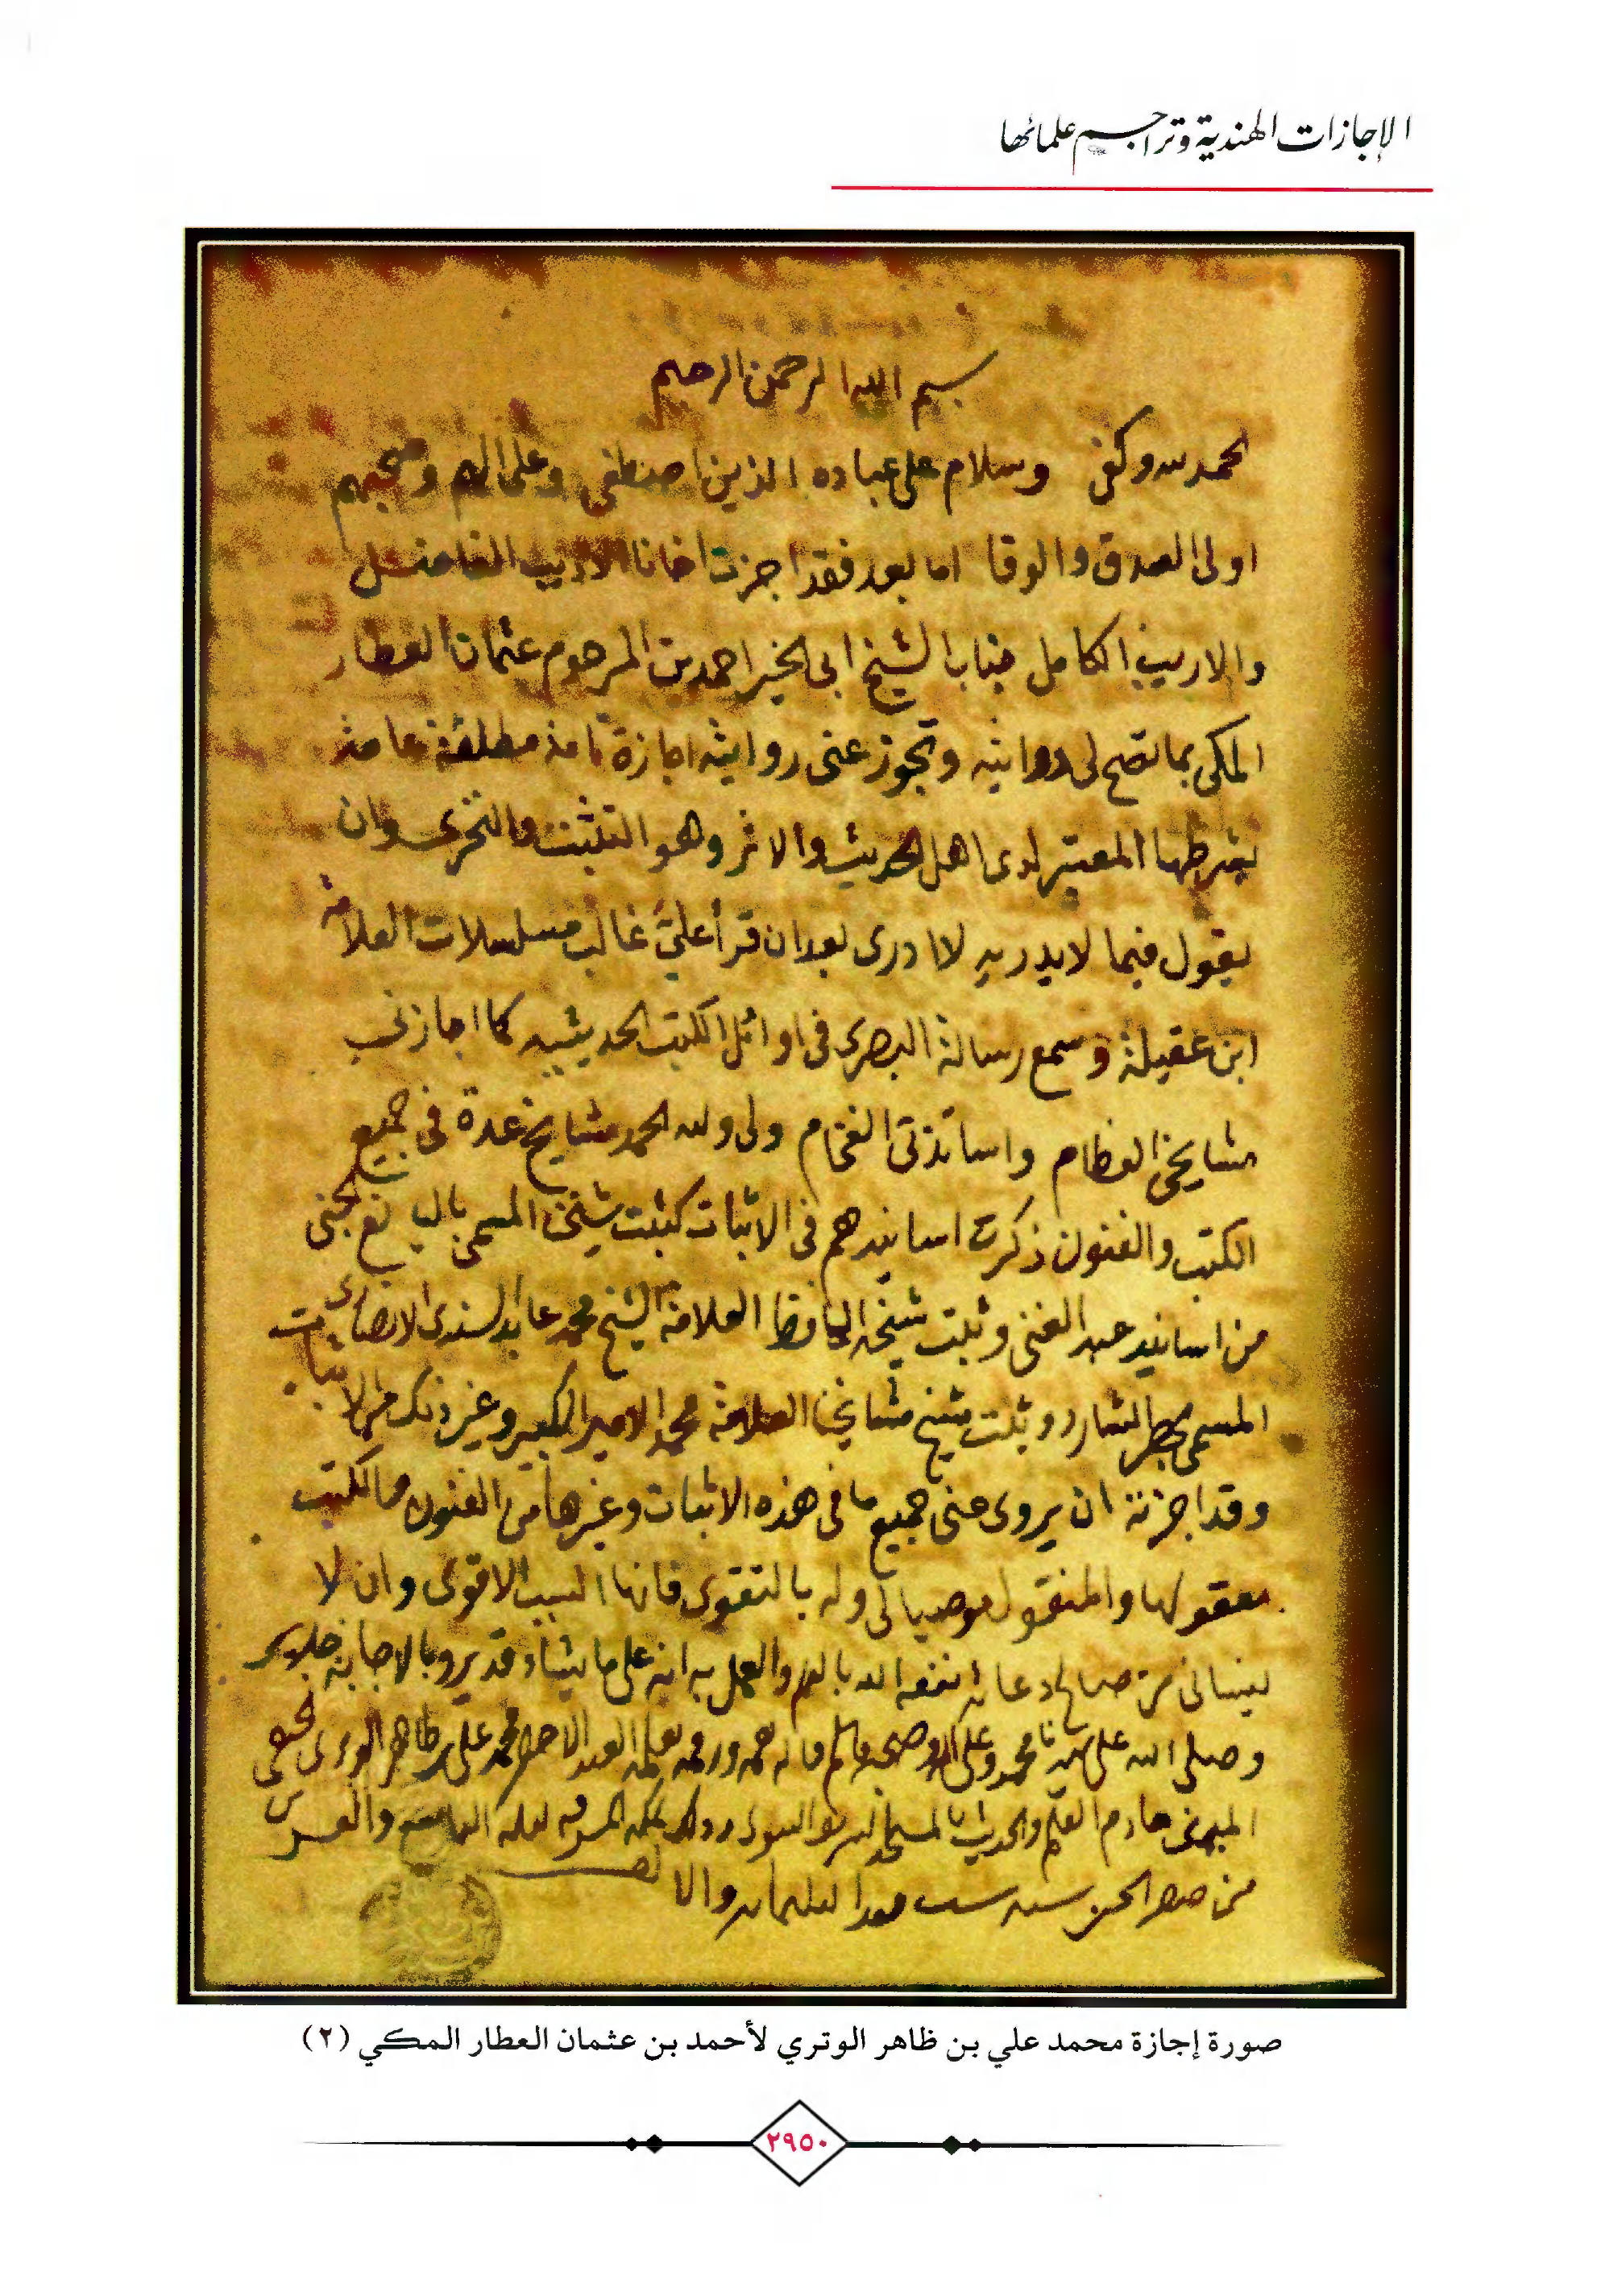 الإجازات الهندية وتراجم علمائها
بسم الله الرحمن الرحيم
الحمد لله وكفى وسلام على عباده الذين اصطفى وعلى الهم وصحبهم
اولى الصدق والوفا اما بعد فقد اجزت اخانا الاديب الفاضل
والاريب الكامل جناب الشيخ ابى الخير احمد بن المرحوم عثمان العطار
المكى بما تصح لى روايته وتجوز عنى روايته اجازة تامة مطلقة عامة
بشرطها المعتبر لدى اهل الحديث والاثر وهو التثبت والتحرى وان
يقول فيما لا يدريه لا ادرى بعد ان قرأ علىّ غالب مسلسلات العلامة
ابن عقيلة وسمع رسالة البصرى فى اوائل الكتب الحديثيه كما اجازنى
مشايخى العظام واساتذتى الفخام ولى ولله الحمد مشايخ عدة فى جميع
الكتب والفنون ذكرت اسانيدهم فى الاثبات كثبت شيخنا المسمى باليانع الجنى
من اسانيد عبد الغنى وثبت شيخه الحافظ العلامة الشيخ محمد عابد السندى الانصارى
المسمى بحصر الشارد وثبت شيخ مشايخنا العلامة محمد الامير الكبير وغير ذلك من الاثبات
وقد اجزته ان يروى عنى جميع ما فى هذه الاثبات وغيرها من الفنون والكتب
معقولها والمنقول موصيا لى وله بالتقوى فانها السبب الاقوى وان لا
ينسانى من صالح دعائه نفعه الله بالعلم والعمل به انه على ما يشاء قدير وبالاجابة جدير
وصلى الله على سيدنا محمد وعلى اله وصحبه وسلم قاله بفمه ورقمه بقلمه العبد الاحقر محمد على بن ظاهر الوترى الحنفى
المدنى خادم العلم والحديث بالمسجد الشريف النبوى وذلك بمكة المشرفه ليلة والعشرين
من صفر الخير سنه سبعة بعد الثلثمايه والالف
صورة إجازة محمد علي بن ظاهر الوتري لأحمد بن عثمان العطار المكي (٢)
٢٩٥٠